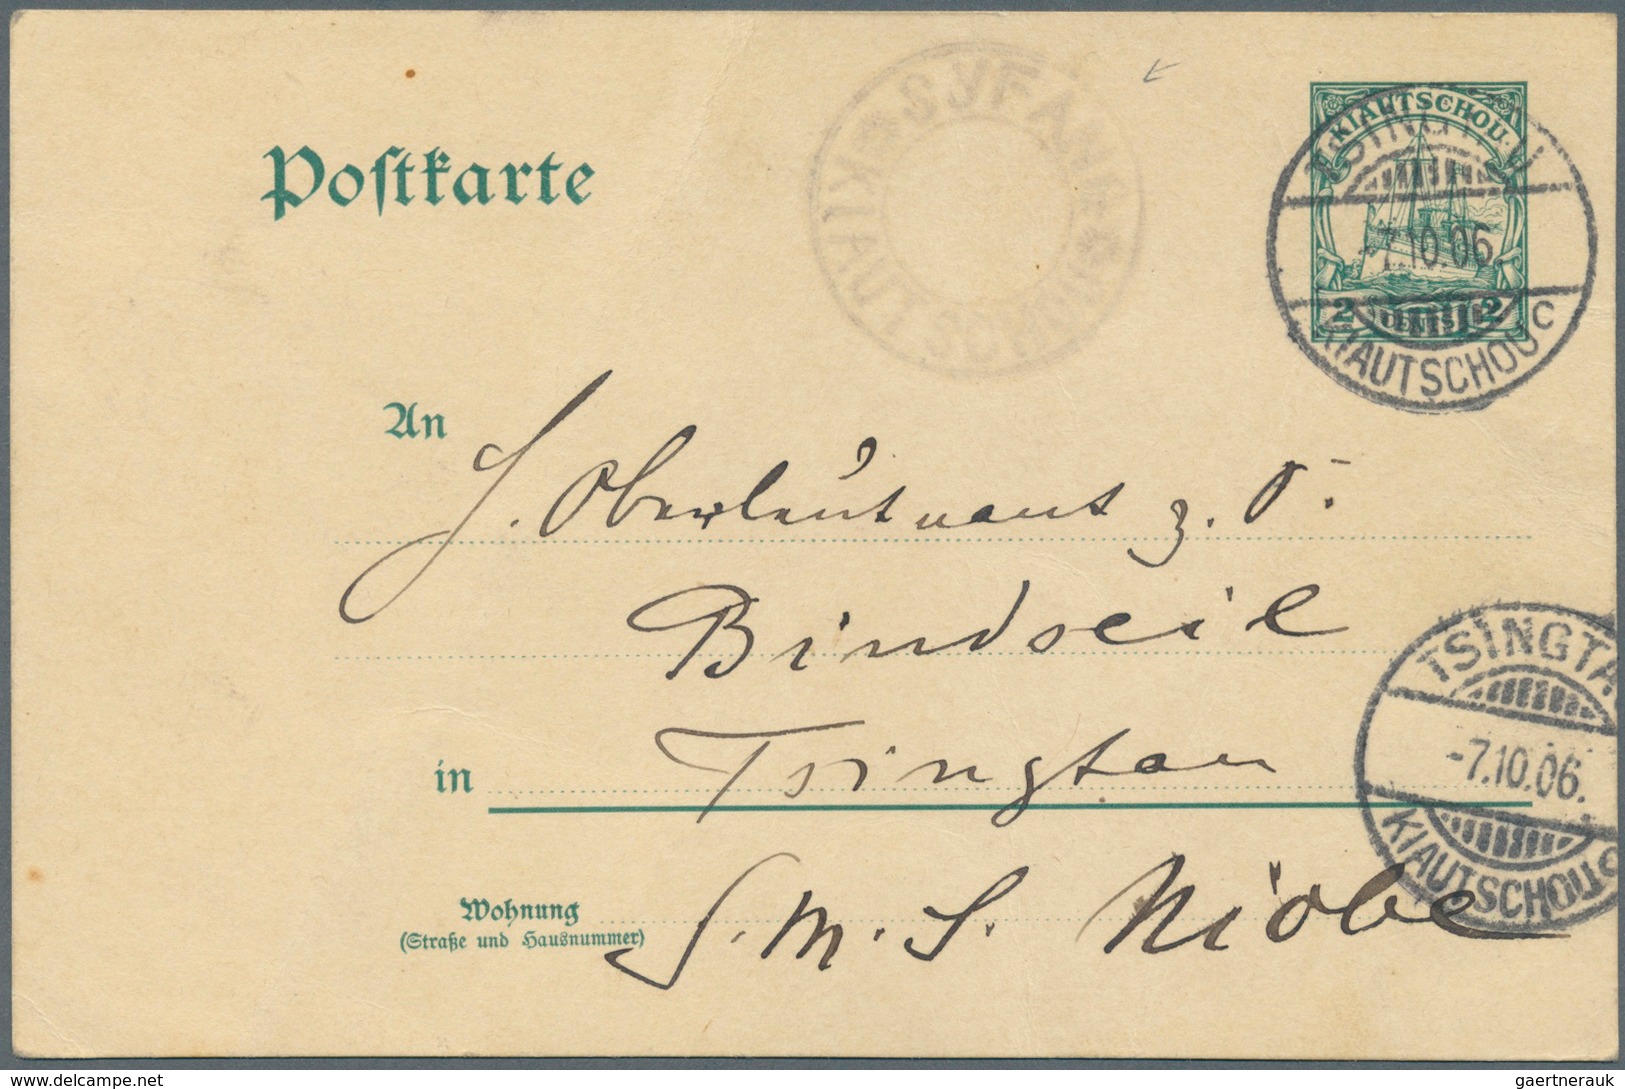 SYFANG
KIAUTSCHOU
KIAUTSCHOU
TSINGTAU
-7.10.06.
2 CENTS 2
KIAUTSCHOU c
Postkarte
An
S. Oberleutnant z. S.
Bindseil
in Tsingtau
TSINGTA
-7.10.06.
KIAUTSCHOU c
Wohnung
(Straße und Hausnummer)
S.M.S. Niobe
delcampe.net
gaertnerauk